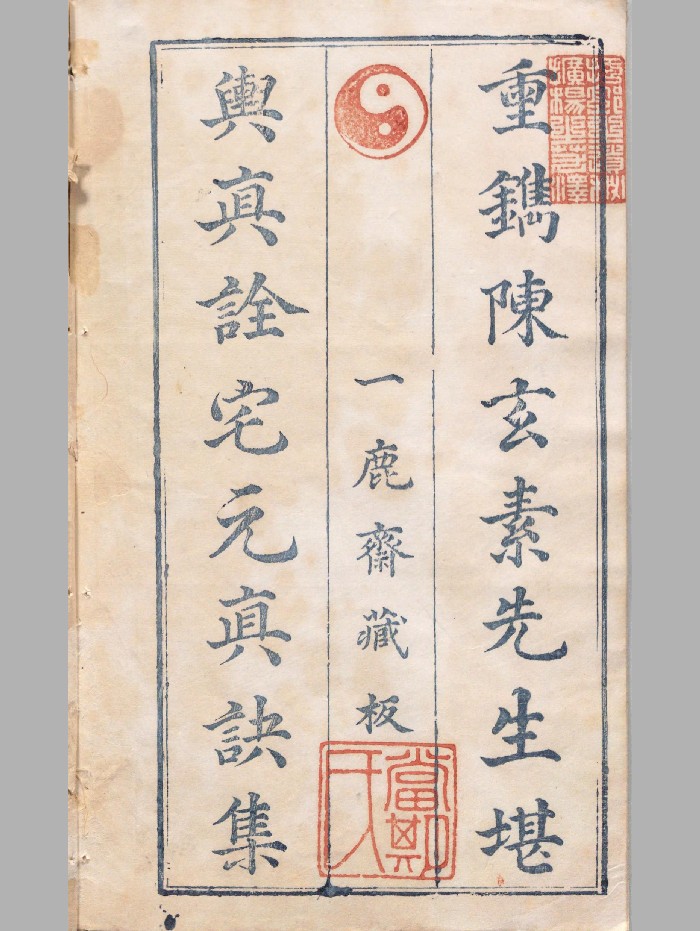 重鐫陳玄素先生堪
一鹿齋藏板
輿真詮宅元真訣集